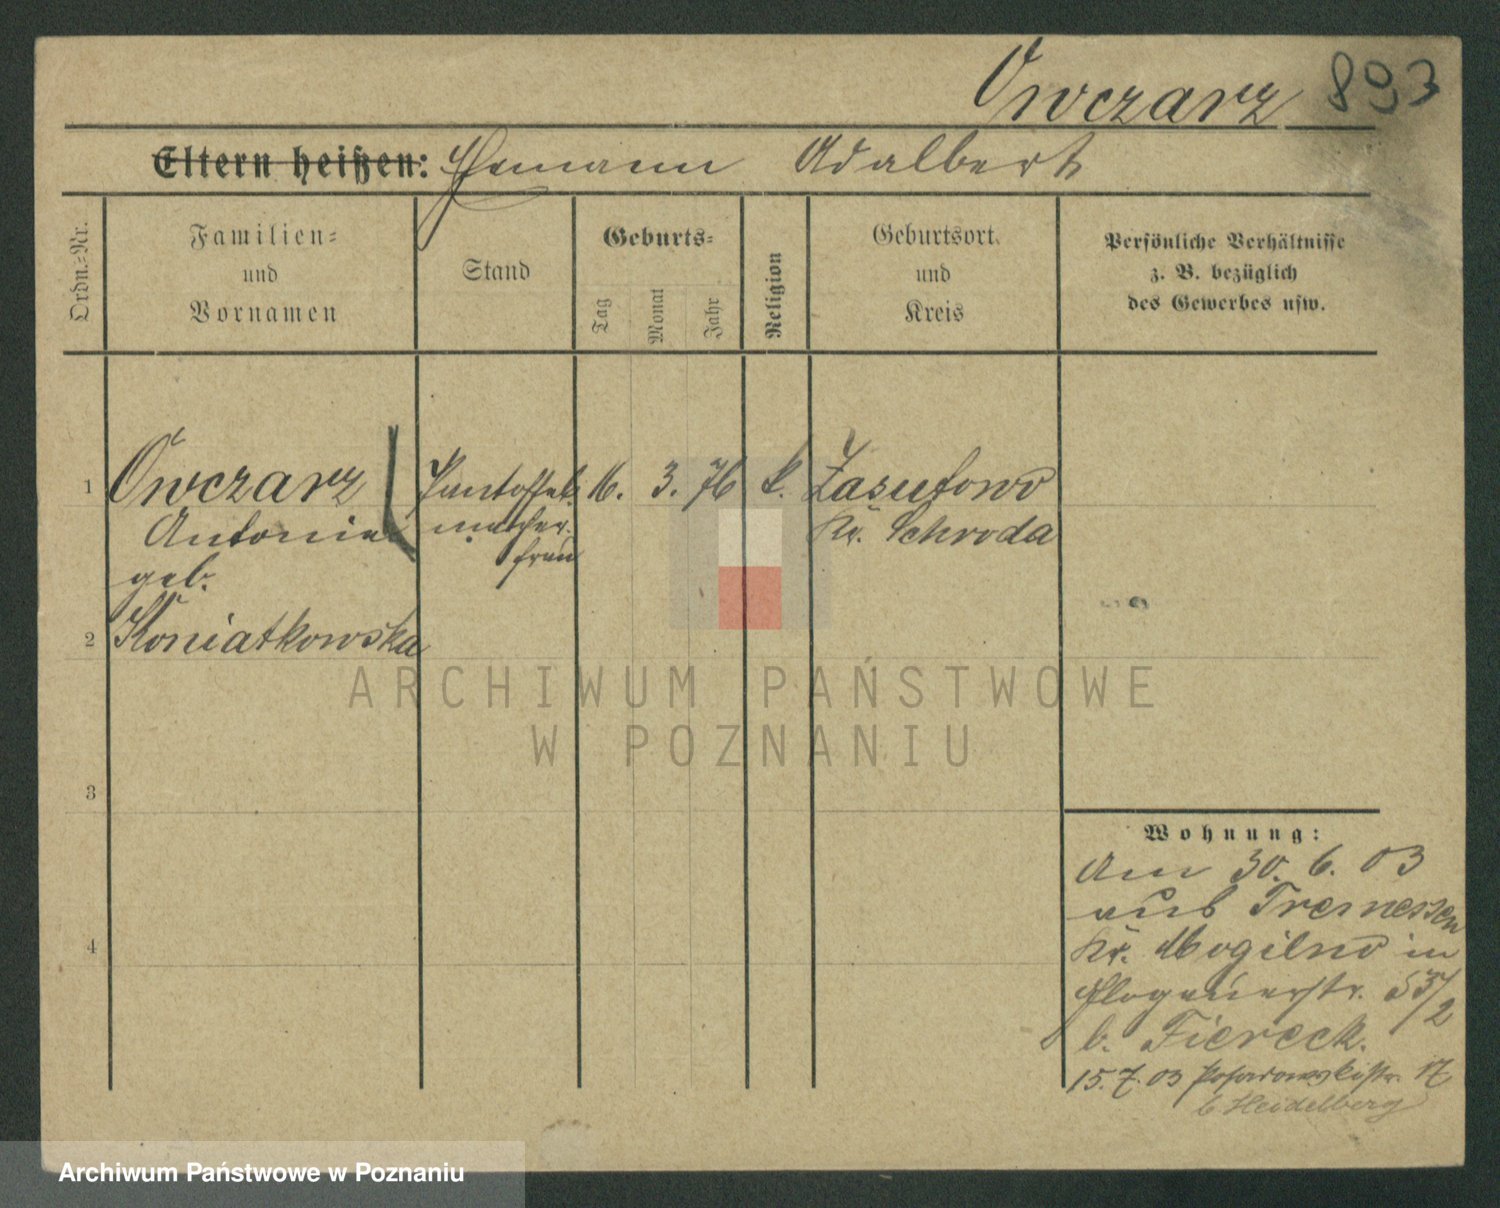 Owczarz 893
Eltern heißen: Ehemann Adalbert
Ordn.-Nr.
Familien-
und
Vornamen
Stand
Geburts-
Tag
Monat
Jahr
Religion
Geburtsort
und
Kreis
Persönliche Verhältnisse
z. B. bezüglich
des Gewerbes usw.
1 Owczarz Pantoffel- 16. 3. 76 k. Zasutowo
Antonie macher- Kr. Schroda
frau
geb.
2 Koniatkowska
3
4
Wohnung:
Am 30. 6. 03
aus Tremessen
Kr. Mogilno in
Glogauerstr. 53/2
b. Fiereck.
15. 7. 03 Posadowskistr. 17
b Heidelberg
ARCHIWUM PAŃSTWOWE
W POZNANIU
Archiwum Państwowe w Poznaniu